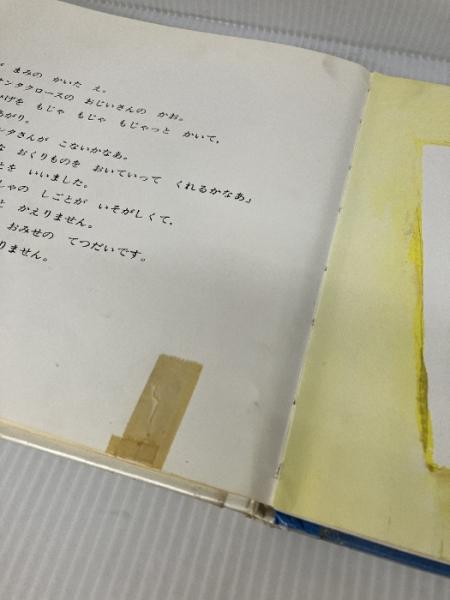 まみの かいた え。
サンタクロースの おじいさんの かお。
ひげを もじゃ もじゃ もじゃっと かいて、
あがり。
ンタさんが こないかなあ。
な おくりものを おいていって くれるかなあ」
とを いいました。
しゃの しごとが いそがしくて、
と かえりません。
おみせの てつだいです。
りません。